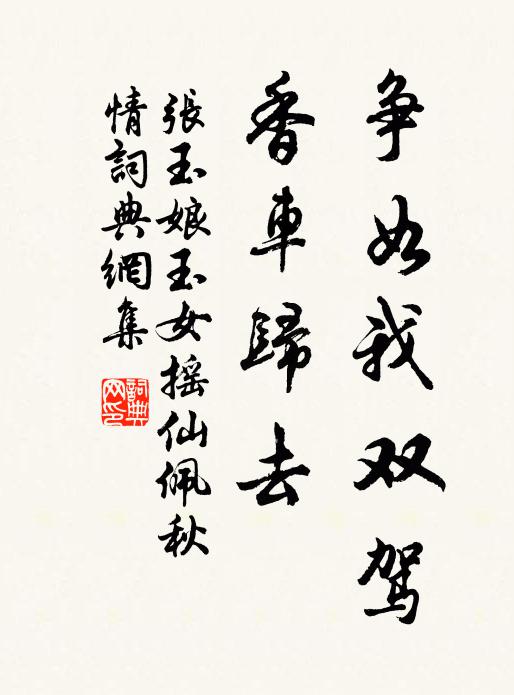 争如我双驾
香車歸去
張玉娘玉女摇仙佩秋
情詞典網集
詞典网印